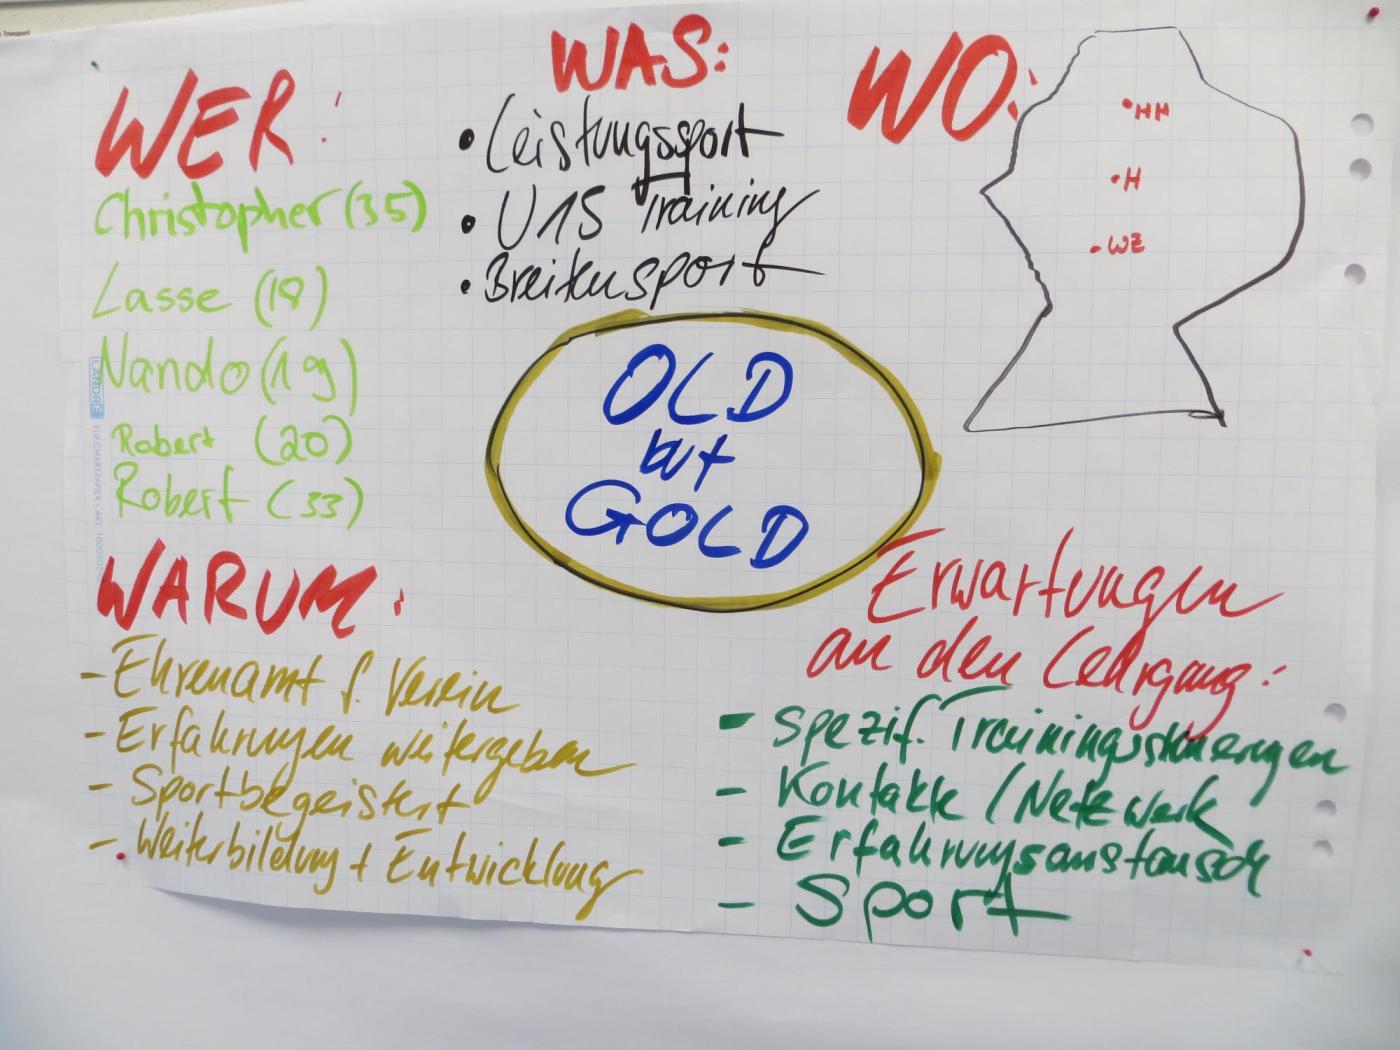 WER:
Christopher (35)
Lasse (18)
Nando (19)
Robert (20)
Robert (33)
WAS:
• Leistungssport
• U15 Training
• Breitensport
WO:
• HH
• H
• WZ
OLD
but
GOLD
WARUM:
- Ehrenamt f. Verein
- Erfahrungen weitergeben
- Sportbegeistert
- Weiterbildung + Entwicklung
Erwartungen
an den Lehrgang:
- Spezif.
- Kontakte / Netzwerk
- Erfahrungsaustausch
- Sport
LANDRÉ
FLIPCHARTPAPIER • ART.
Transport